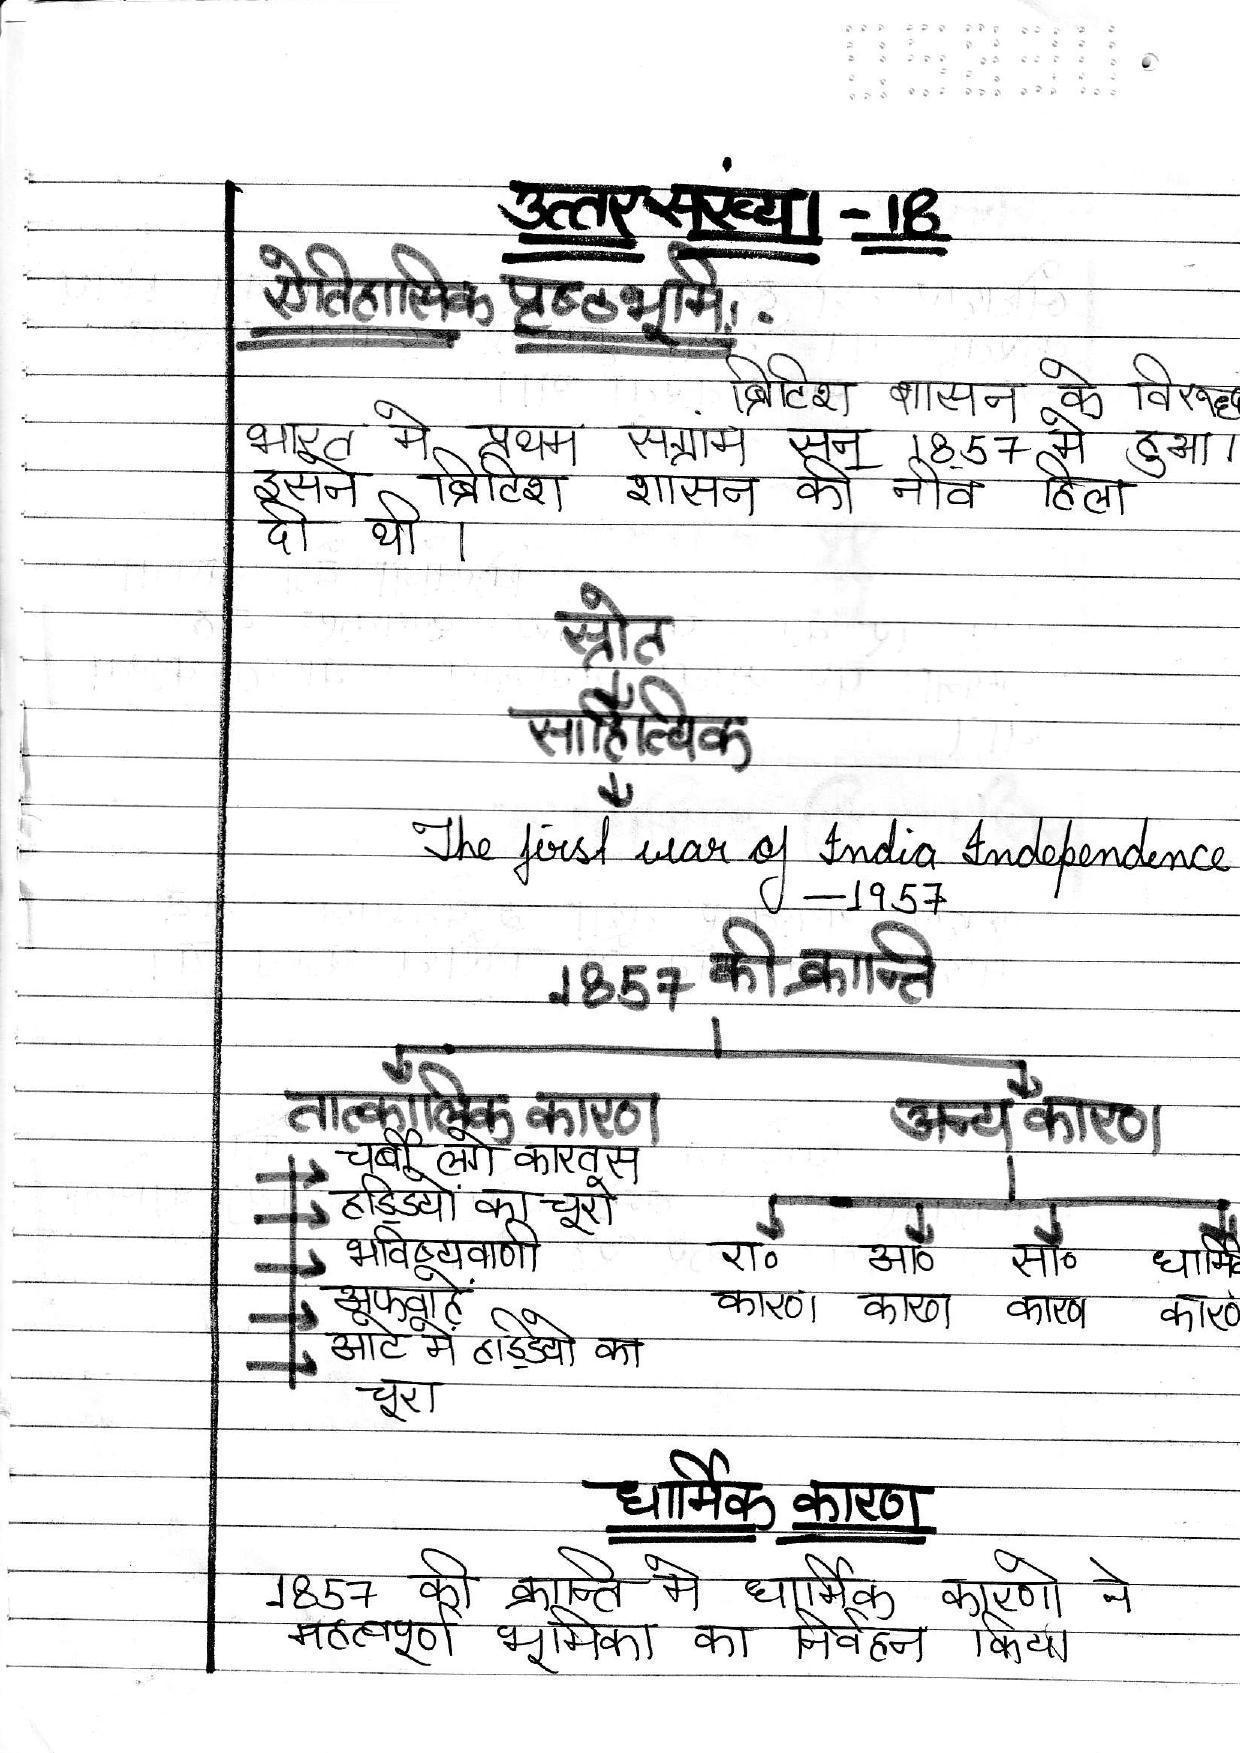 उत्तर संख्या - 1B
ऐतिहासिक पृष्ठभूमि:
ब्रिटिश शासन के विरुद्ध
भारत मे प्रथम संग्राम सन् 1857 मे हुआ।
इसने ब्रिटिश शासन की नीव हिला
दी थी।
स्रोत
साहित्यिक
The first war of India Independence
—1957
1857 की क्रान्ति
तात्कालिक कारण अन्य कारण
चर्बी लगे कारतूस
हड्डियों का चूरा
भविष्यवाणी
अफवाहें
आटे में हड्डियो का
चूरा
रा० आ० सा० धार्मि
कारण कारण कारण कारण
धार्मिक कारण
1857 की क्रान्ति मे धार्मिक कारणो ने
महत्वपूर्ण भूमिका का निर्वहन किया